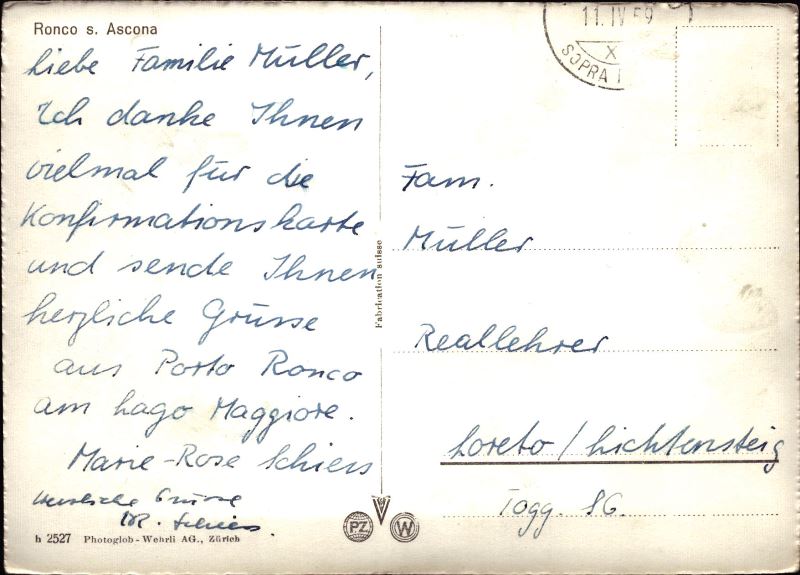 Ronco s. Ascona
Liebe Familie Müller,
Ich danke Ihnen
vielmal für die
Konfirmationskarte
und sende Ihnen
herzliche Grüsse
aus Porto Ronco
am Lago Maggiore.
Marie-Rose Schiess
Herzliche Grüsse
W. Schiess.
h 2527 Photoglob-Wehrli AG., Zürich
Fabrication suisse
PZ
W
11. IV 59
X
SOPRA
Fam.
Müller
Reallehrer
Loreto / Lichtensteig
Togg. SG.